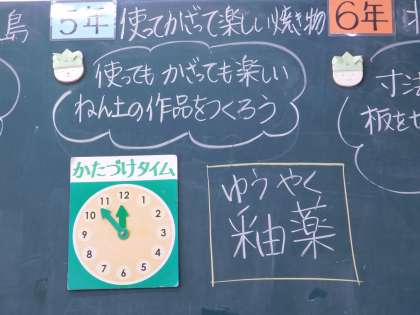 島
5年
使ってかざって楽しい焼き物
6年
使っても かざっても楽しい
ねん土の作品をつくろう
寸法
板を
かたづけタイム
12
1
2
3
4
5
6
7
8
9
10
11
ゆうやく
釉薬